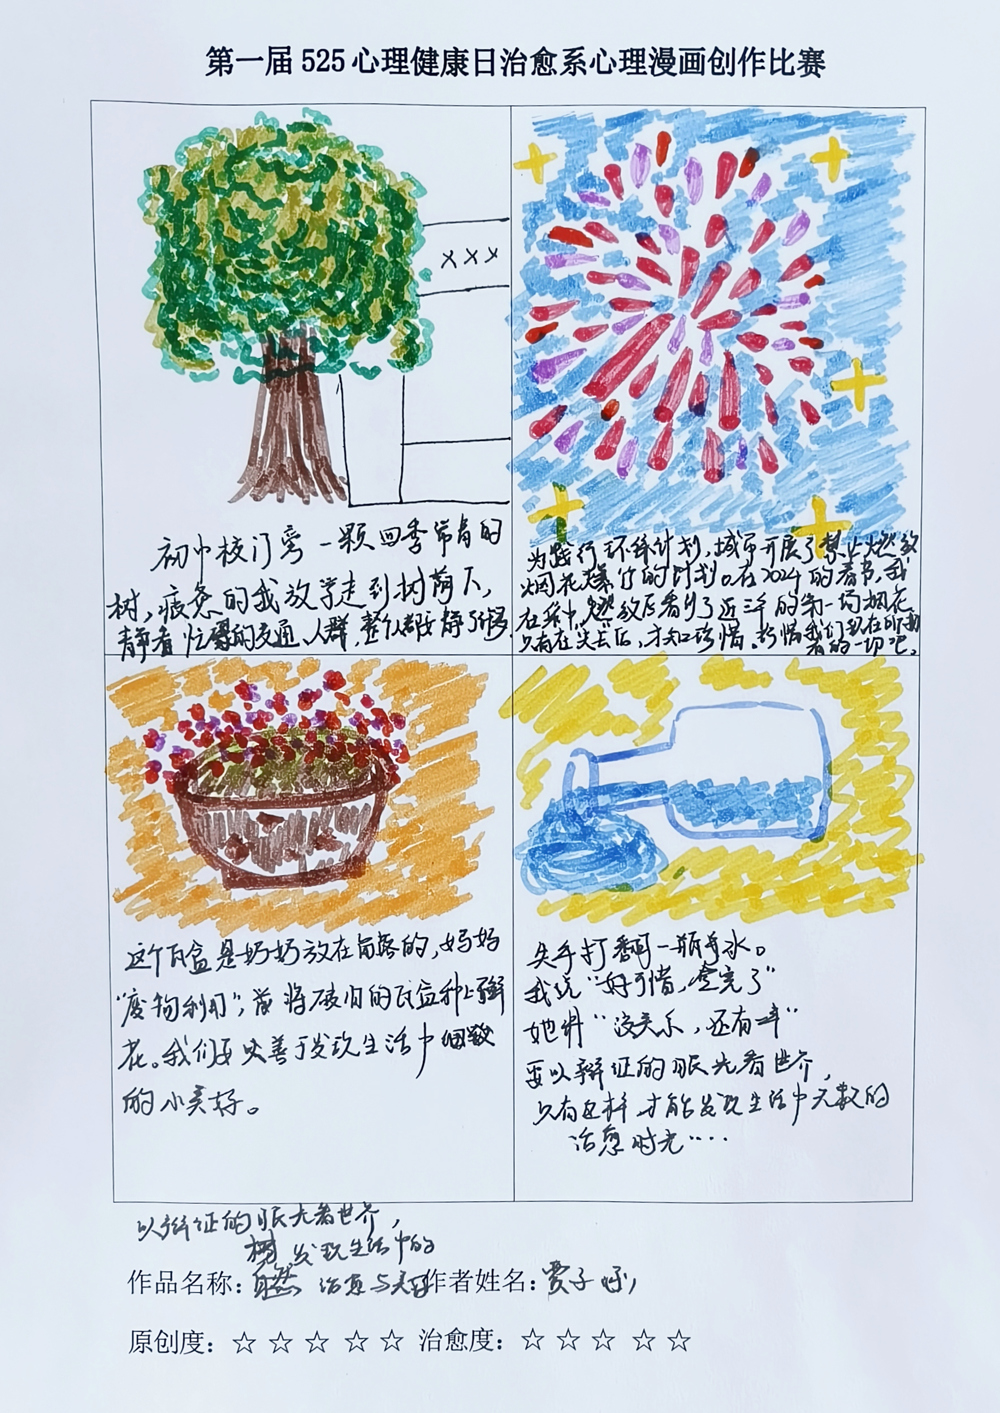 第一届525心理健康日治愈系心理漫画创作比赛
×××
初中校门旁一颗四季常青的
树，疲惫的我放学走到树荫下，
静看忙碌的交通、人群，整个人都安静了很多
为践行环保计划，城市开展了禁止燃放
烟花爆竹的计划。在2024的春节，我
在
燃放区看到了近三年的第一场烟花
只有在失去后，才知珍惜。珍惜我们现在所拥
有的一切吧。
这个瓦盆是奶奶放在角落的，妈妈
“废物利用”，将破旧的瓦盆种上鲜
花。我们要以善于发现生活中细微
的小美好。
失手打翻一瓶香水。
我说“好可惜，全完了”
她们“没关系，还有一半”
要以辩证的眼光看世界，
只有这样才能发现生活中无数的
治愈时光……
以辩证的眼光看世界，
发现生活中的
作品名称：自然 治愈与美好 作者姓名：贾子
原创度：☆☆☆☆☆ 治愈度：☆☆☆☆☆